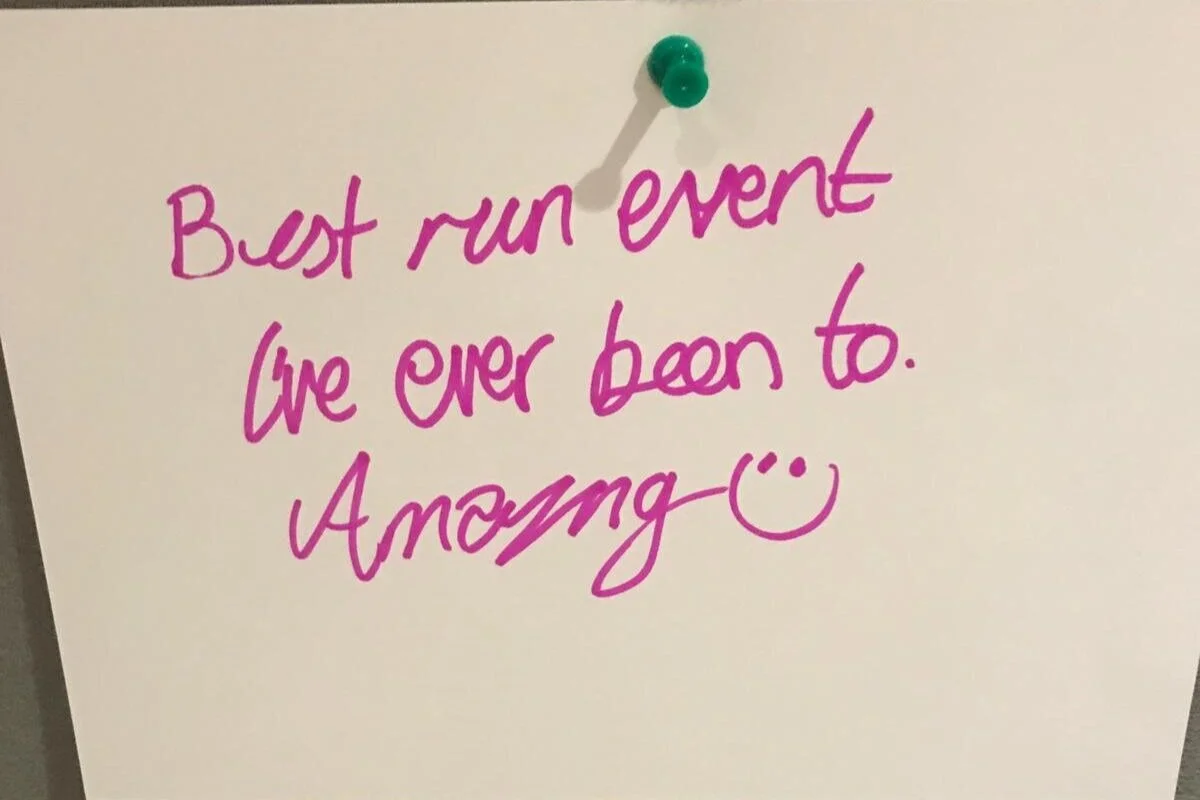 Best run event
I've ever been to.
Amazing